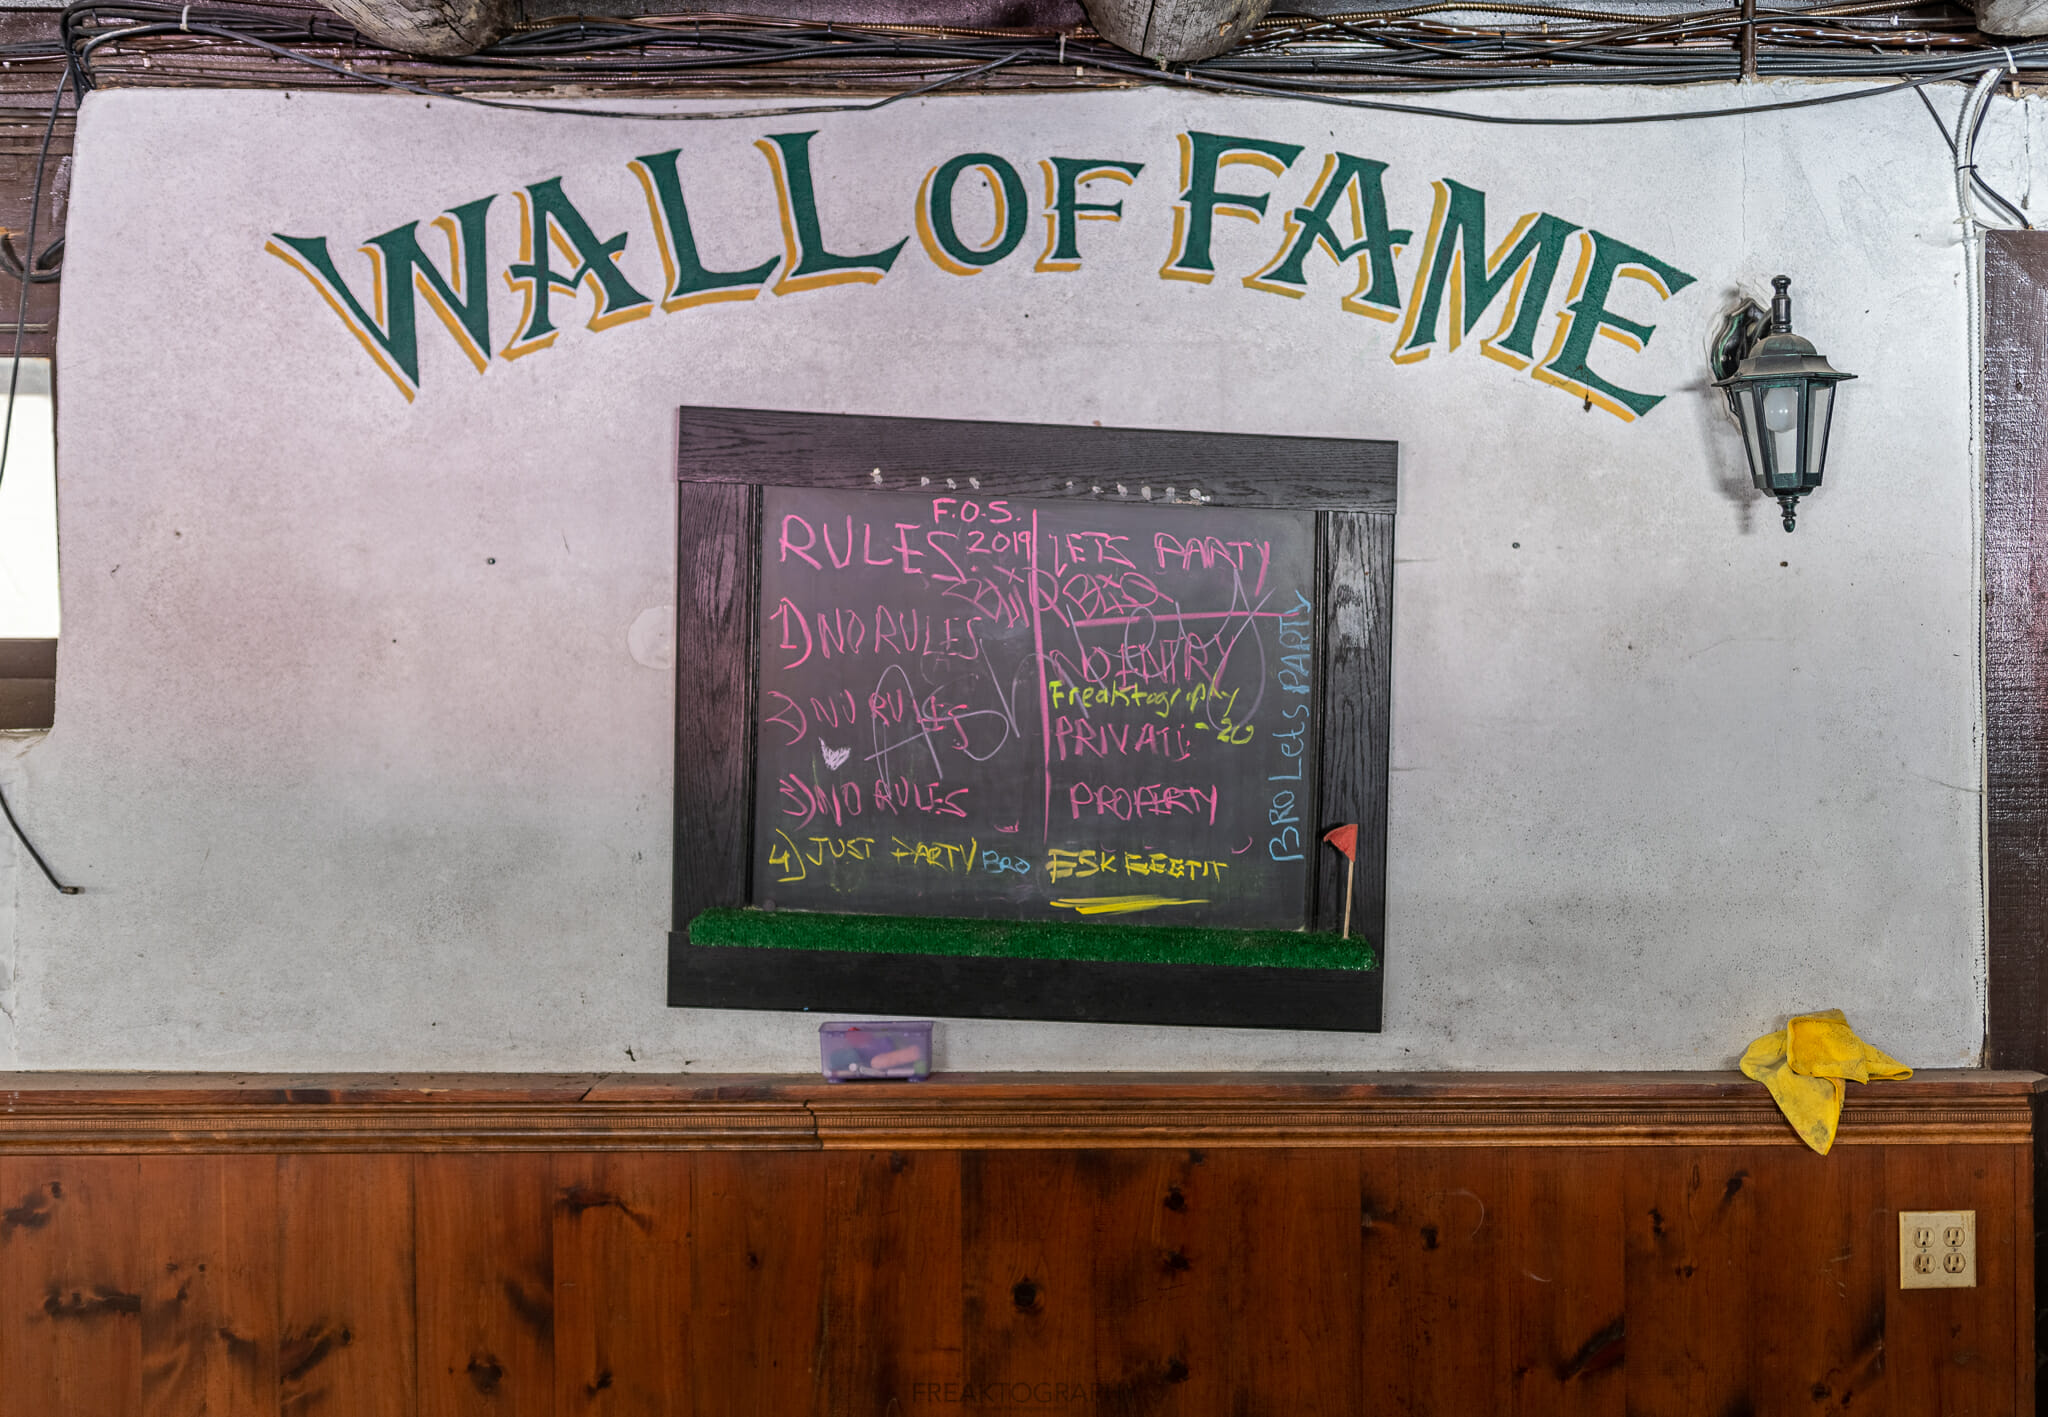 WALL OF FAME
F.O.S.
RULES 2019
1) NO RULES
2) NO RULES
3) NO RULES
4) JUST PARTY BRO
LETS PARTY
NO ENTRY
Freaktography
-20
PRIVATE
PROPERTY
ESKEEETIT
BRO LETS PARTY
FREAKTOGRAPHY